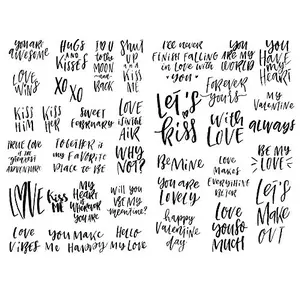 you are
awesome
HUGS
AND
Kisses
I LOVE U
to the
MOON
AND
BACK
Shut
up
AND
kiss
ME
LOVE
WINS
XO
XO
Kiss
HIM
KISS
HER
SWEET
FEBRUARY
LOVE
is in the
AIR
TRUE LOVE
is the
greatest
ADVENTURE
TOGETHER is
my FAVORITE
PLACE to BE
WHY
NOT?
LOVE
Kiss
ME
MY
HEART
is
WHEREVER
YOU ARE
Will you
BE MY
Valentine?
LOVE
VIBES
YOU MAKE
ME Happy
HELLO
MY LOVE
I'll never
FINISH FALLING
in LOVE with
YOU
YOU
ARE MY
WORLD
YOU
HAVE
MY
HEART
Let's
kiss
FOREVER
yours
with
LOVE
MY
VALENTINE
always
BE MINE
LOVE
MAKES
EVERYTHING
BETTER
BE MY
LOVE!
YOU ARE
LOVELY
happy
VALENTINE
day
Love
you SO
MUCH
Let's
MAKE
OUT